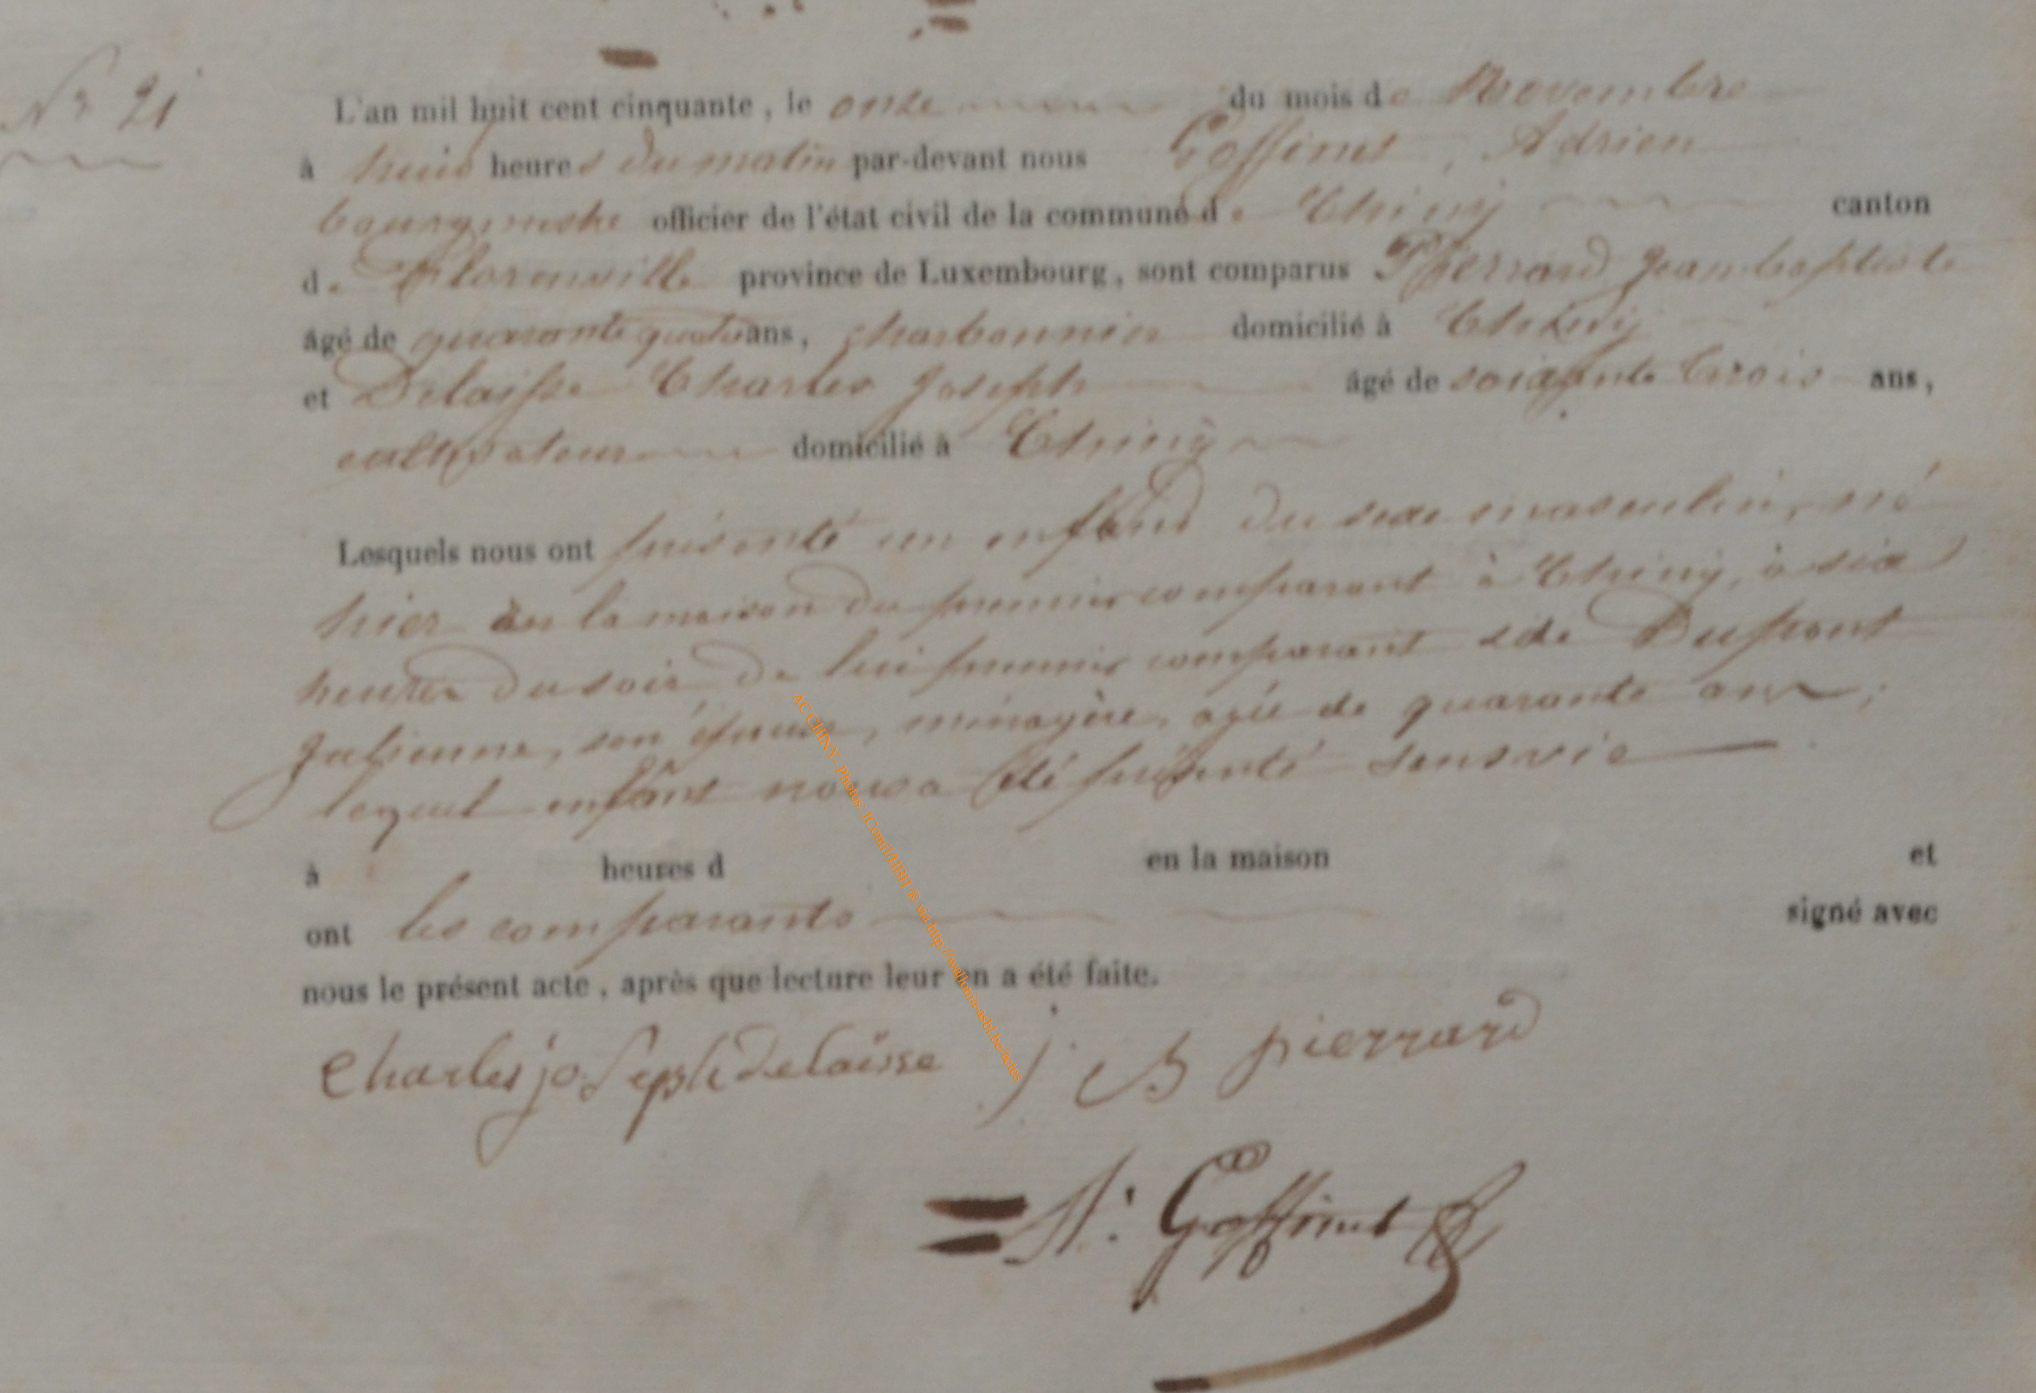 N° 21
L'an mil huit cent cinquante, le onze du mois de Novembre
à huit heures du matin par-devant nous Goffinet, Adrien
bourgmestre officier de l'état civil de la commune de Chiny canton
de Florenville province de Luxembourg, sont comparus Pierrard Jeanbaptiste
âgé de quarante quatre ans, charbonnier domicilié à Chiny
et Delaisse Charles Joseph âgé de soixante trois ans,
cultivateur domicilié à Chiny
Lesquels nous ont présenté un enfant du sexe masculin, né
hier en la maison du premier comparant à Chiny, à six
heures du soir de lui premier comparant et de Dupont
Julienne, son épouse, ménagère, agée de quarante ans,
lequel enfant nous a été présenté sans vie
à heures d en la maison et
ont les comparants signé avec
nous le présent acte, après que lecture leur en a été faite.
Charles joseph delaisse J B pierrard
A. Goffinet
AC CHINY - Photos